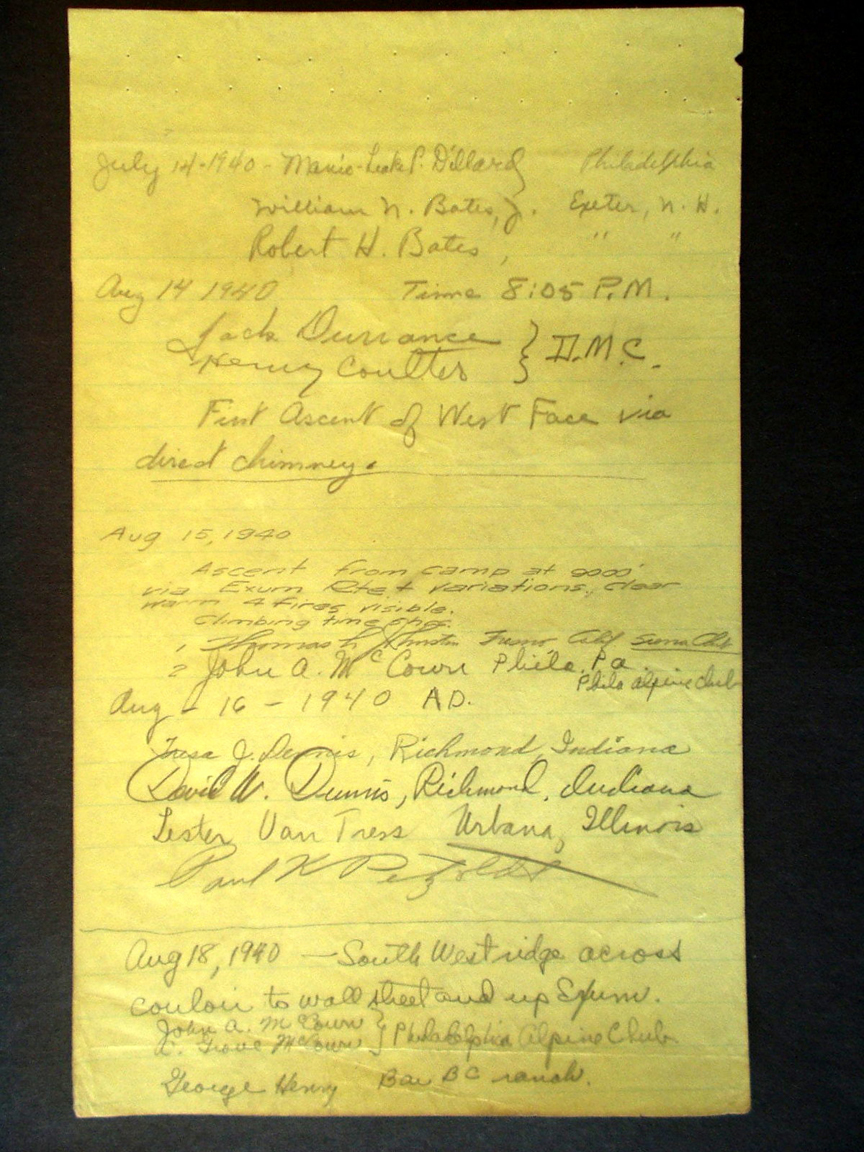 July 14-1940 - P. Dillard } Philadelphia
William N. Bates, Jr. Exeter, N.H.
Robert H. Bates, " "
Aug 14 1940 Time 8:05 P.M.
Jack Durrance } D.M.C.
Henry Coulter
First Ascent of West Face via
direct chimney.
Aug 15, 1940
Ascent from camp at 9000'
via Exum Rte + variations, clear
warm 4 fires visible.
Climbing time
1 Thomas Calif Sierra Club
2 John A. McCown Phila. Pa.
Phila alpine club
Aug - 16 - 1940 AD.
J. Dennis, Richmond, Indiana
David W. Dennis, Richmond, Indiana
Lester Van Tress Urbana, Illinois
Paul K Petzoldt
Aug 18, 1940 - South West ridge across
couloir to wall street and up Exum.
John A. McCown } Philadelphia Alpine Club
Grove McCown
George Henry Bar BC ranch.